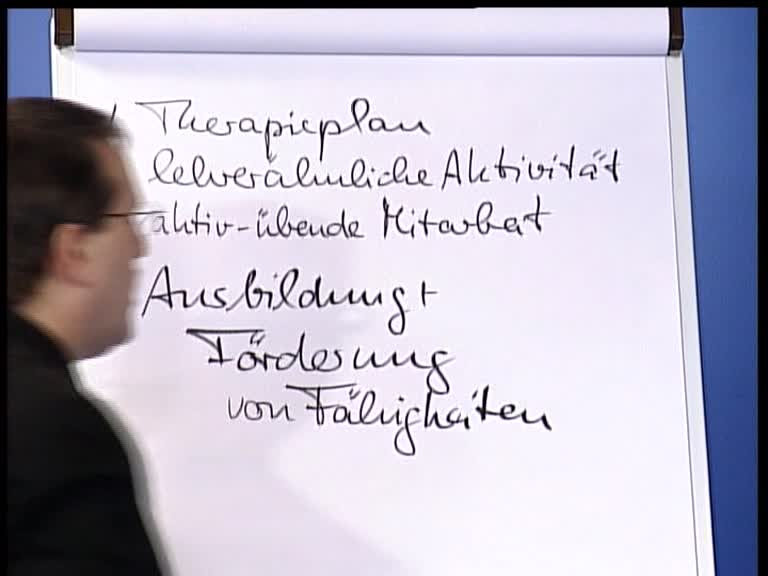 Therapieplan
lehrerähnliche Aktivität
aktiv-übende Mitarbeit
Ausbildung +
Förderung
von Fähigkeiten